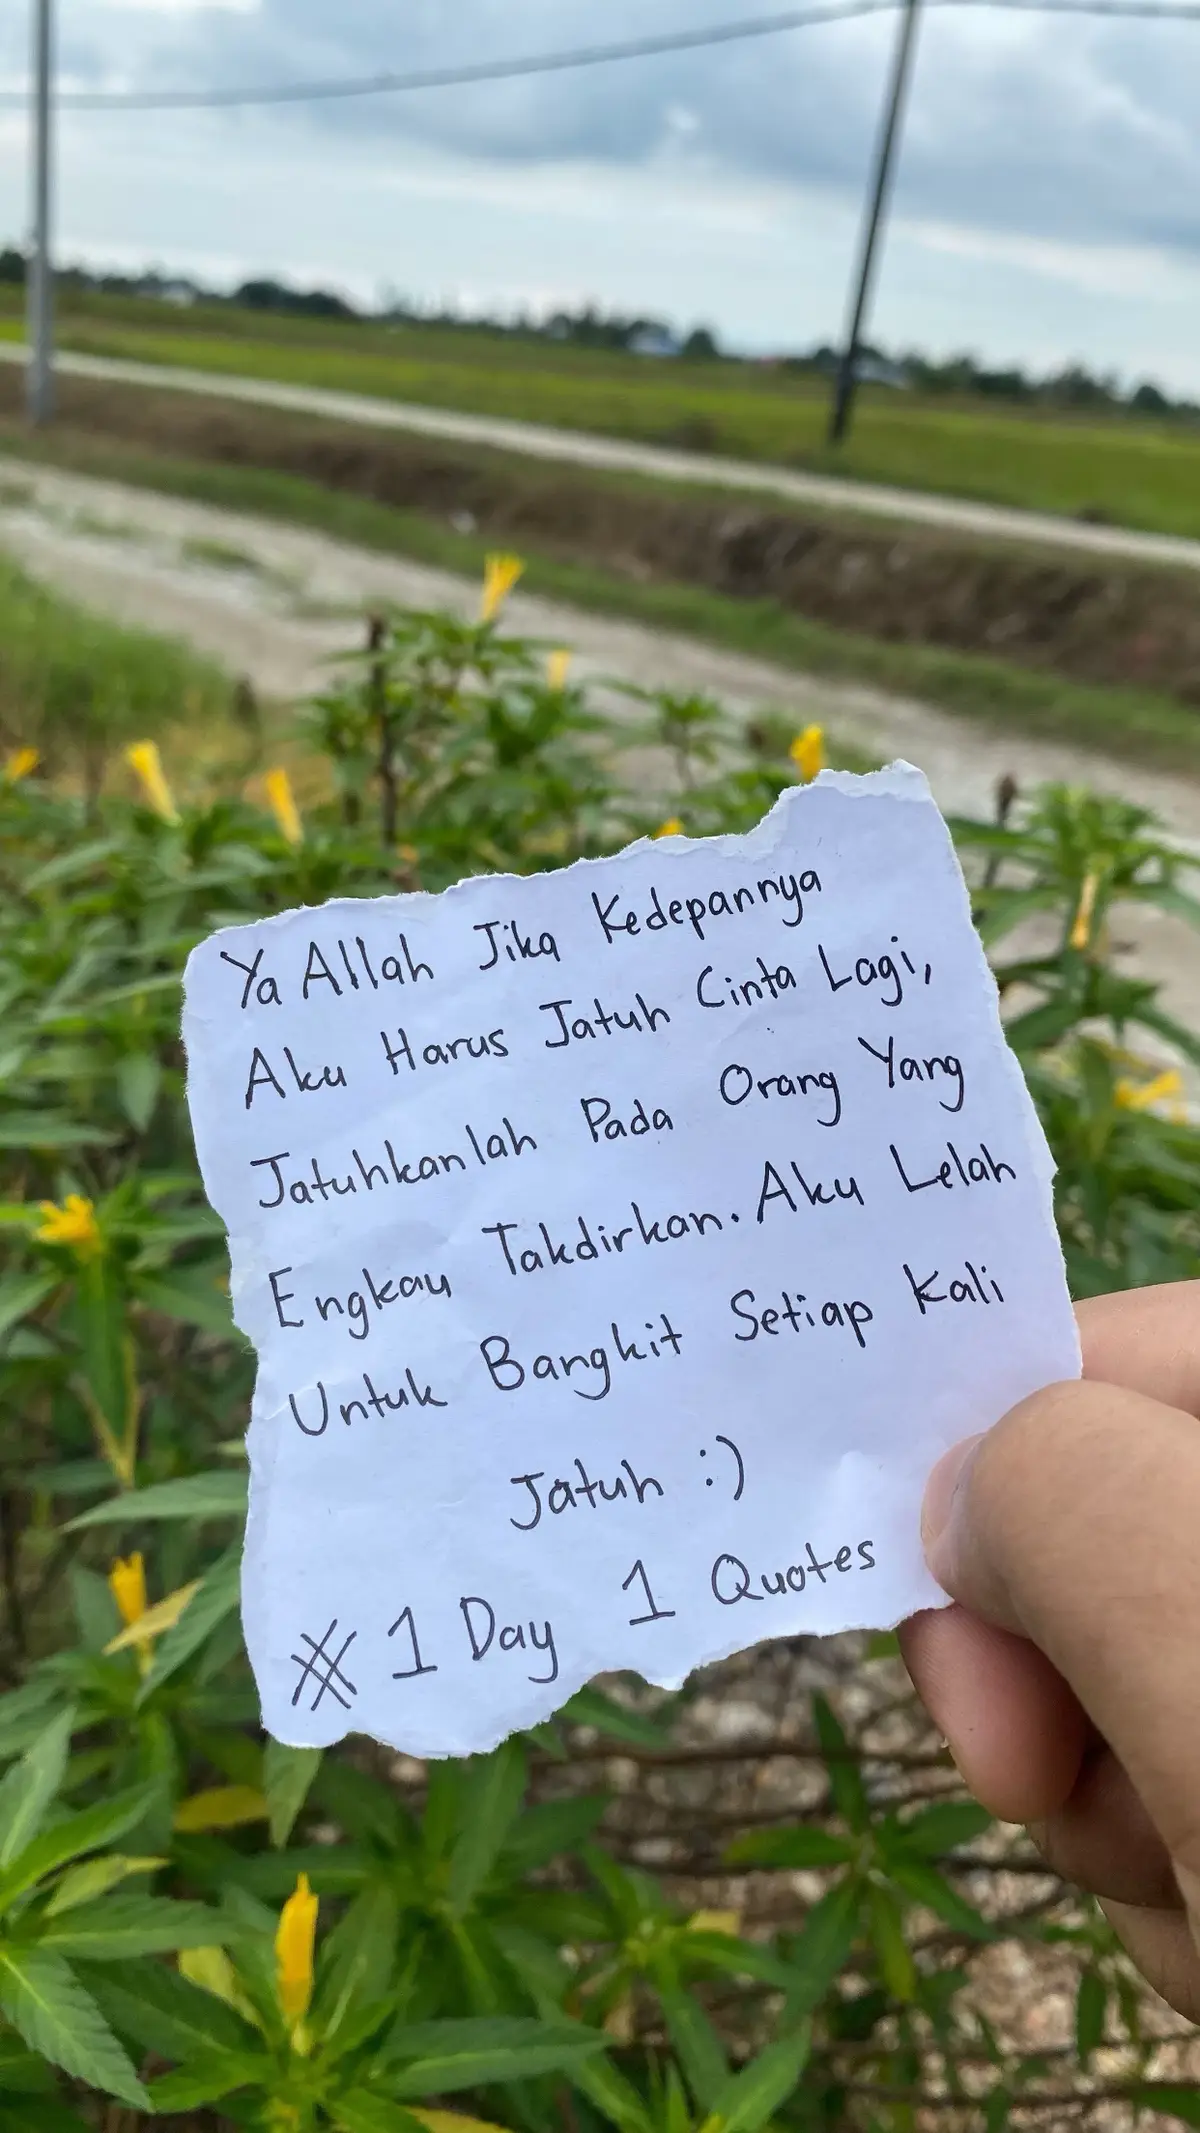 Ya Allah Jika Kedepannya
Aku Harus Jatuh Cinta Lagi,
Jatuhkanlah Pada Orang Yang
Engkau Takdirkan. Aku Lelah
Untuk Bangkit Setiap Kali
Jatuh :)
# 1 Day 1 Quotes